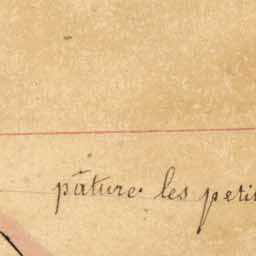 pâture les petit